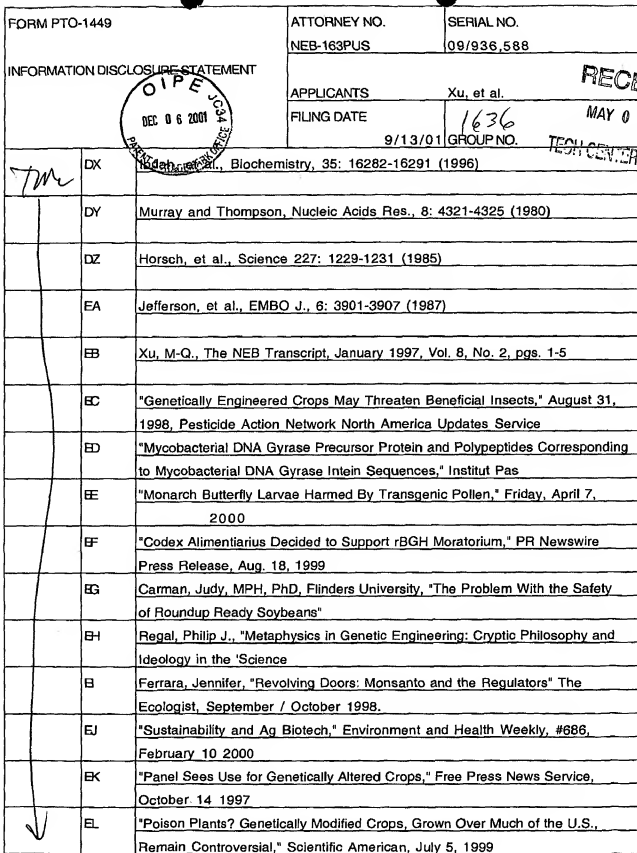 FORM PTO-1449
ATTORNEY NO.
SERIAL NO.
NEB-163PUS
09/936,588
INFORMATION DISCLOSURE STATEMENT
APPLICANTS
Xu, et al.
FILING DATE
1636
9/13/01
GROUP NO.
OIPE
JC34
DEC 06 2001
MAY 0
TECH CENTER
DX
al., Biochemistry, 35: 16282-16291 (1996)
DY
Murray and Thompson, Nucleic Acids Res., 8: 4321-4325 (1980)
DZ
Horsch, et al., Science 227: 1229-1231 (1985)
EA
Jefferson, et al., EMBO J., 6: 3901-3907 (1987)
EB
Xu, M-Q., The NEB Transcript, January 1997, Vol. 8, No. 2, pgs. 1-5
EC
"Genetically Engineered Crops May Threaten Beneficial Insects," August 31,
1998, Pesticide Action Network North America Updates Service
ED
"Mycobacterial DNA Gyrase Precursor Protein and Polypeptides Corresponding
to Mycobacterial DNA Gyrase Intein Sequences," Institut Pas
EE
"Monarch Butterfly Larvae Harmed By Transgenic Pollen," Friday, April 7,
2000
EF
"Codex Alimentiarius Decided to Support rBGH Moratorium," PR Newswire
Press Release, Aug. 18, 1999
EG
Carman, Judy, MPH, PhD, Flinders University, "The Problem With the Safety
of Roundup Ready Soybeans"
EH
Regal, Philip J., "Metaphysics in Genetic Engineering: Cryptic Philosophy and
Ideology in the 'Science
EI
Ferrara, Jennifer, "Revolving Doors: Monsanto and the Regulators" The
Ecologist, September / October 1998.
EJ
"Sustainability and Ag Biotech," Environment and Health Weekly, #686,
February 10 2000
EK
"Panel Sees Use for Genetically Altered Crops," Free Press News Service,
October 14 1997
EL
"Poison Plants? Genetically Modified Crops, Grown Over Much of the U.S.,
Remain Controversial," Scientific American, July 5, 1999